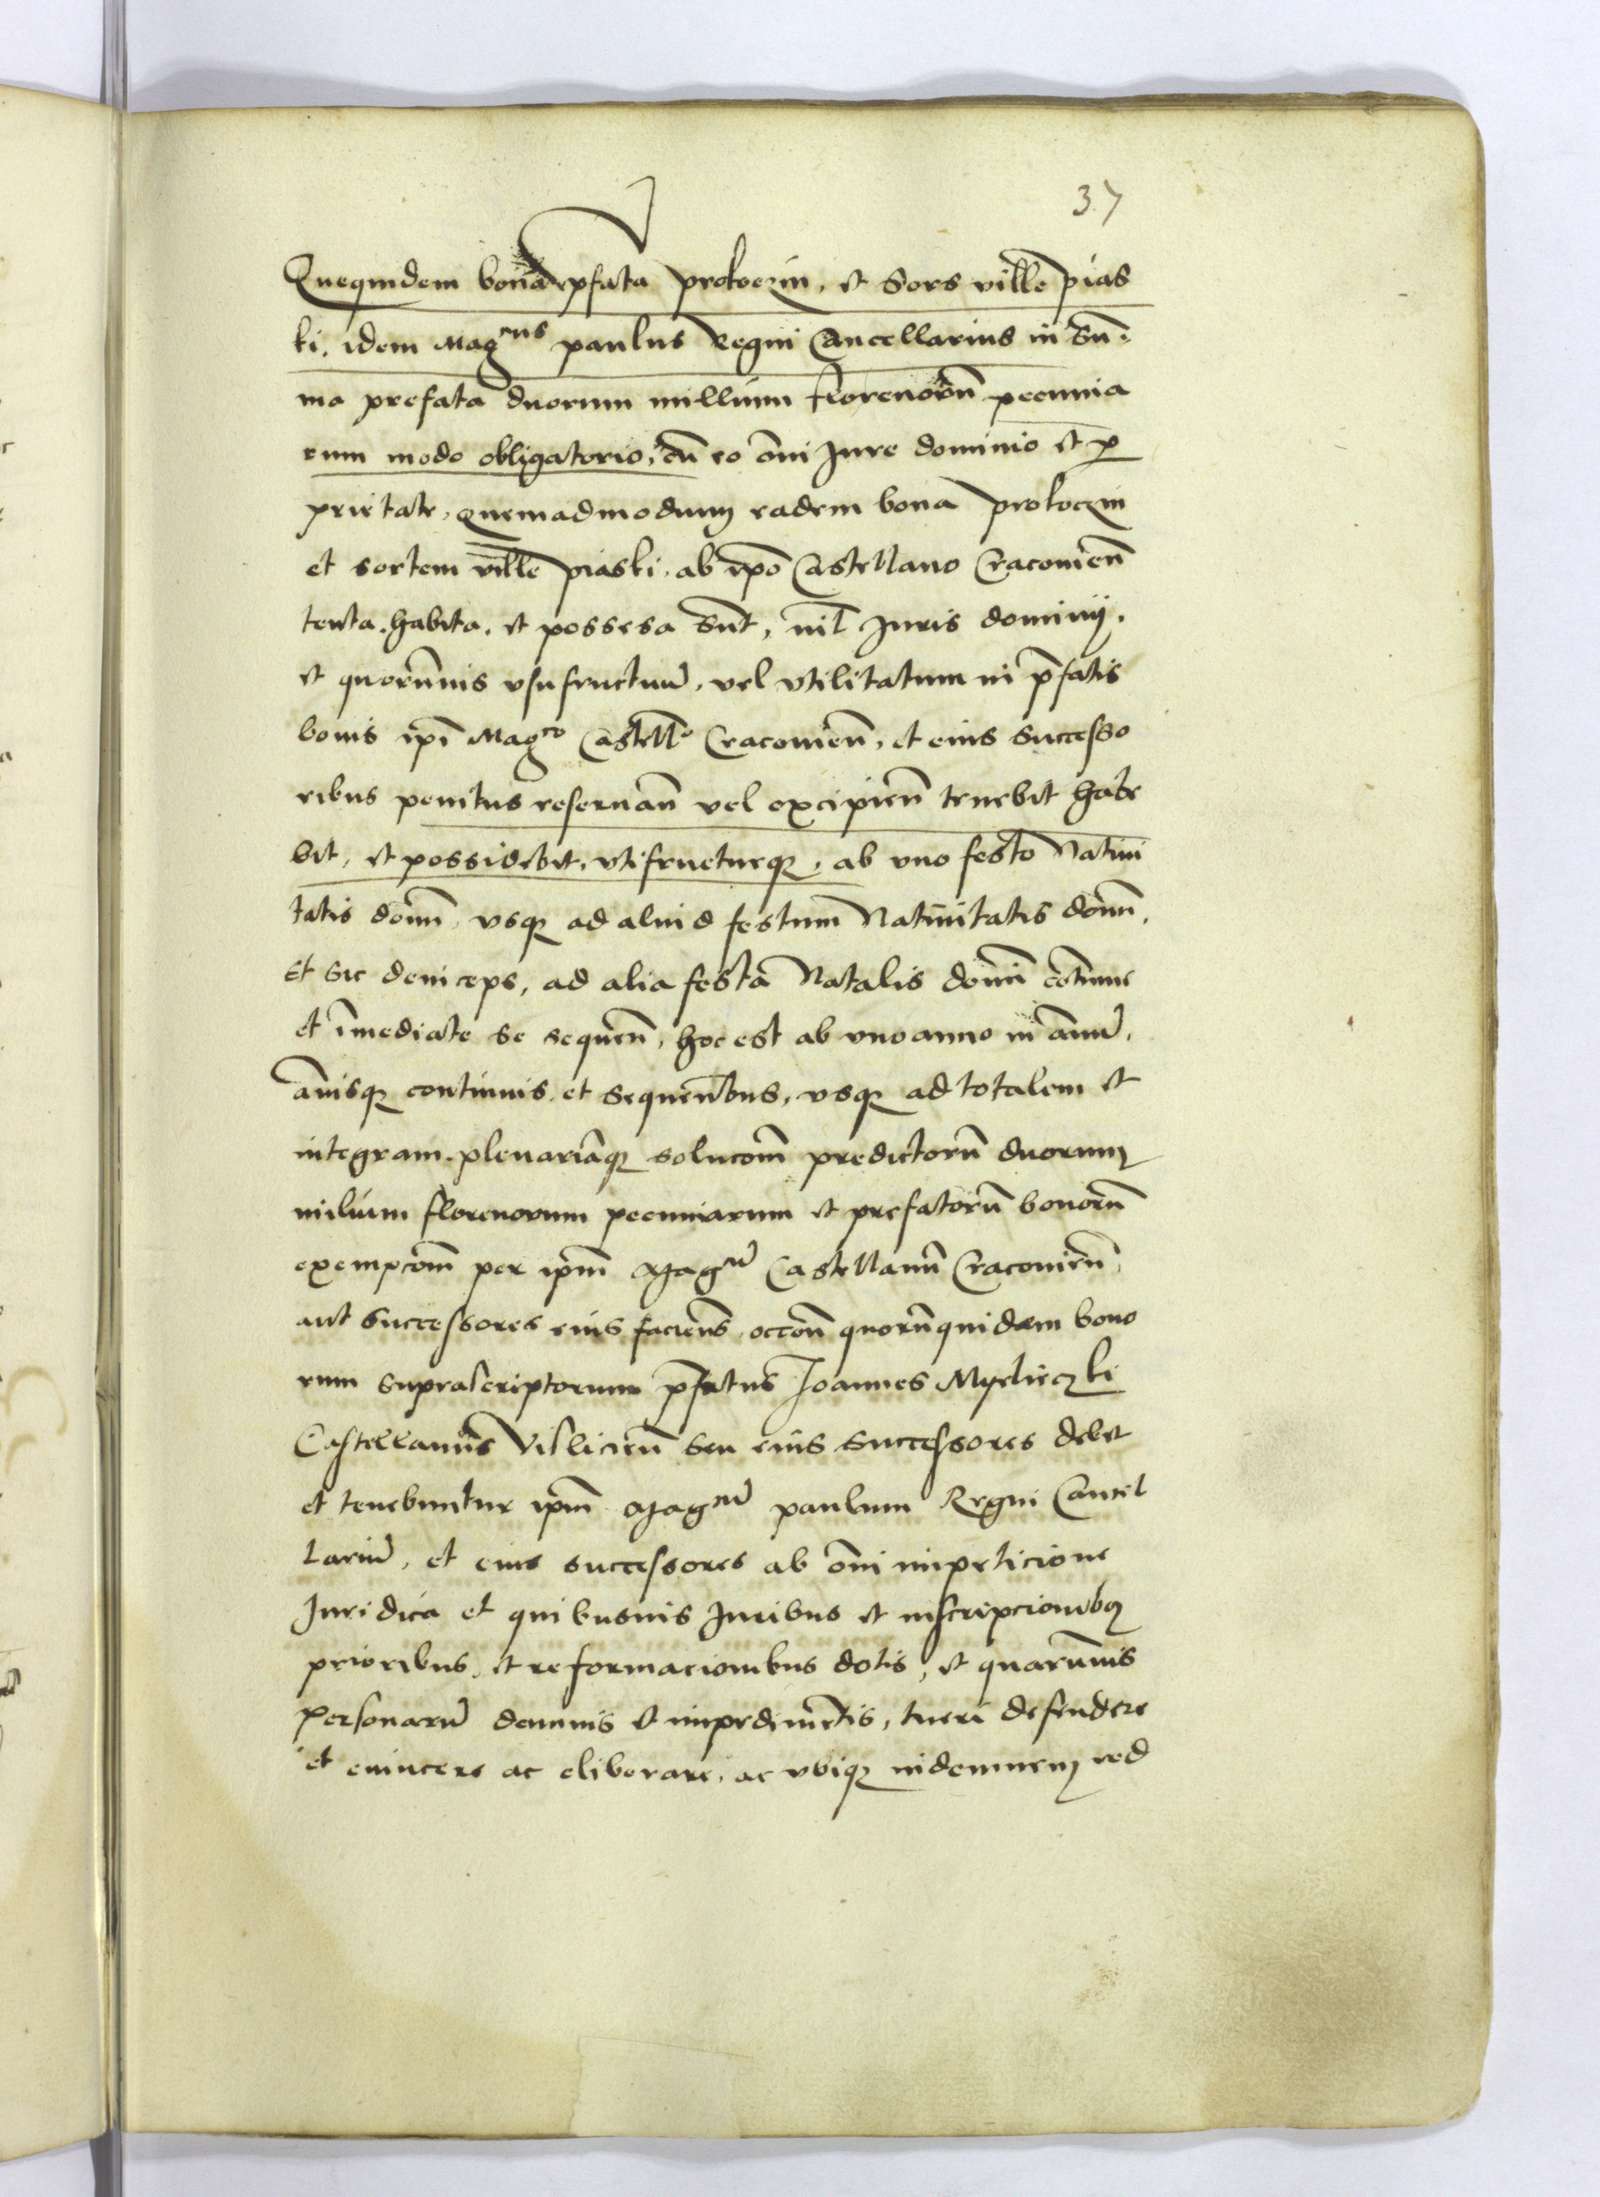 37
Quequidem bona pfata prokoczin, et Sors ville pias
ki, idem Mag<sup>cus</sup> paulus Regni Cancellarius in Sum̄
ma prefata duorum millium florenorū pecunia
rum modo obligatorio, cū eo om̄i Jure dominio et p̱
prietate, Quemadmodum eadem bona prokoczin
et sortem ville piaski, ab ip̄o Castellano Cracouien̄
tenta, habita, et possesa sūt, nil Juris dominij,
et quorūmuis vsufructuū, vel vtilitatum in p̄fatis
bonis ip̄i Mag<sup>co</sup> Castell<sup>o</sup> Cracouien̄, et eius Successo
ribus penitus reseruan̄ vel excipien̄ tenebit habe
bit, et possidebit, vtifrueturq3, ab vno festo Natiui
tatis domī, vsq3 ad aliud festum Natiuitatis domī,
Et sic deinceps, ad alia festa Natalis domī cōtinue
et īmediate se sequen̄, hoc est ab vno anno in annū,
annisq3 continuis et sequentibus, vsq3 ad totalem et
integram, plenariāq3 solucōm̄ predictorū duorum
milium florenorum pecuniarum et prefatorū bonorū
exempcōm̄ per ip̄m Mag<sup>cū</sup> Castellanū Cracouien̄,
aut Successores eius faciens, occōn̄ quorūquidem bono
rum suprascriptorum p̄fatus Joannes Myelieczki
Castellanus Visliciēn̄ seu eius successores debet
et tenebuntur ip̄m Mag<sup>cū</sup> paulum Regni Cancel
lariū, et eius successores ab om̄i impeticione
Juridica et quibusuis Juribus et inscripcionibq3
prioribus, et reformacionibus dotis, et quarūmuis
Personarū damnis et impedimētis, tueri defendere
et euincere ac eliberare, ac vbiq3 indemnem red